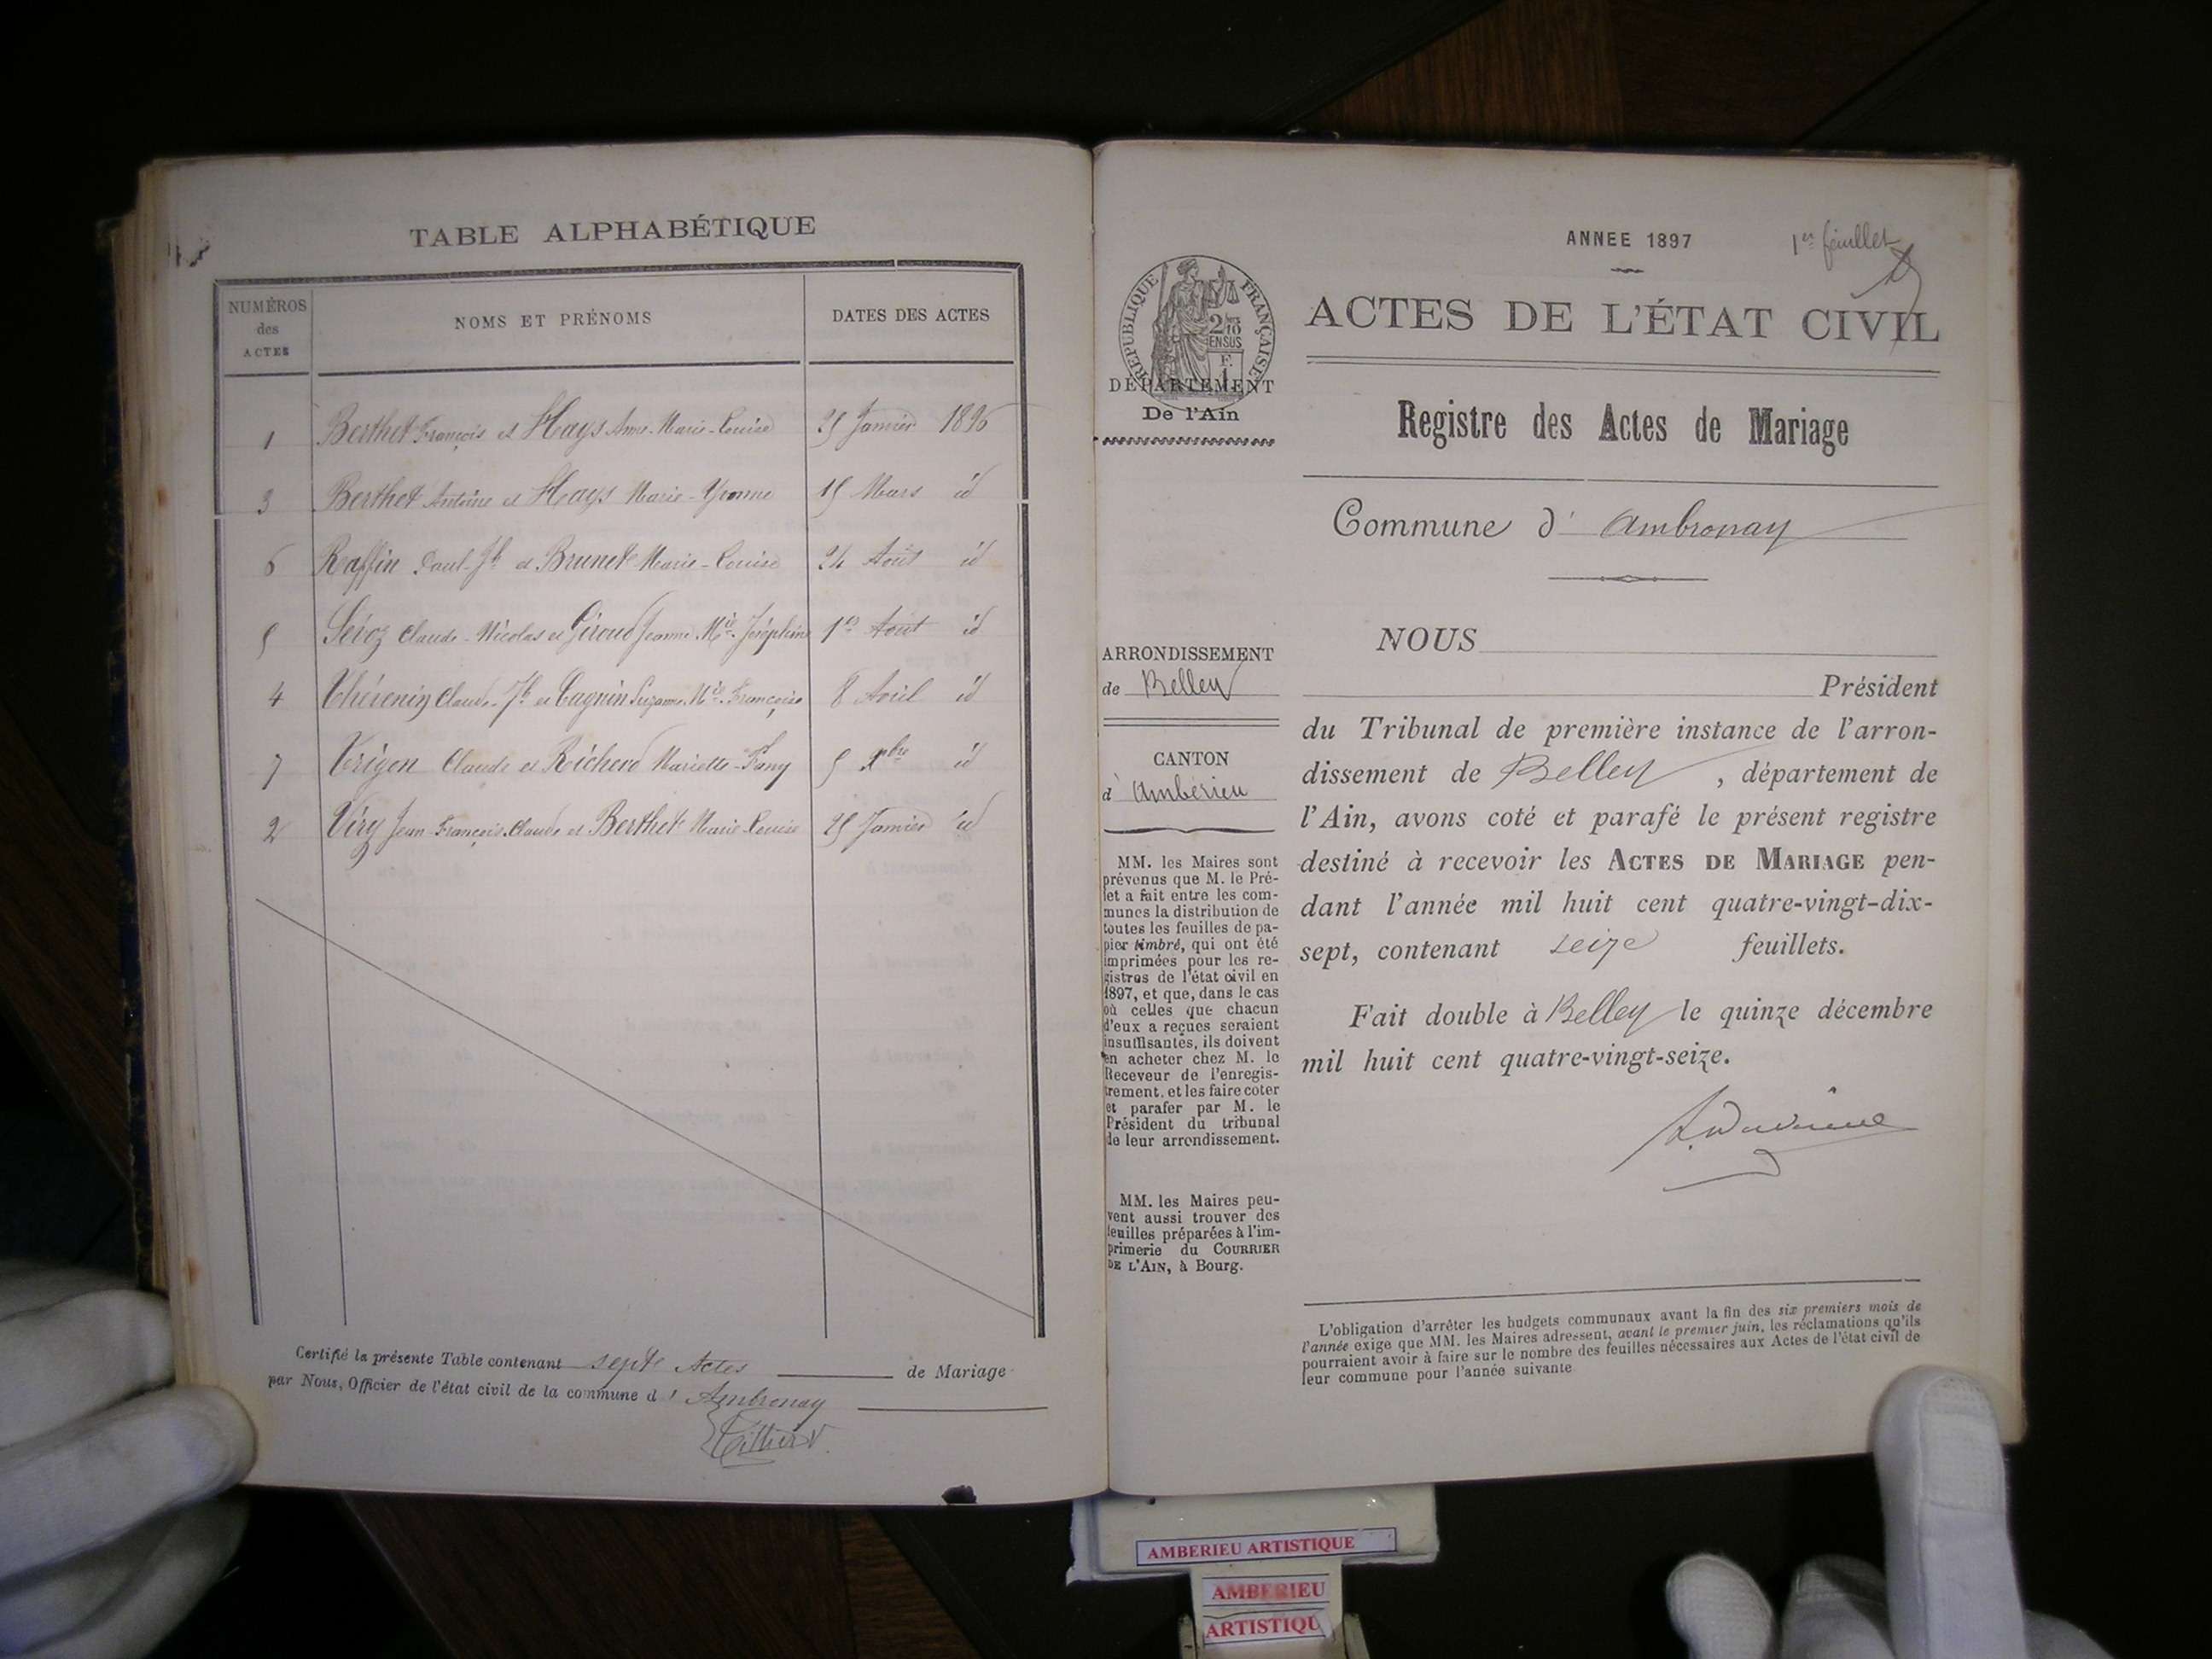 TABLE ALPHABÉTIQUE
NUMÉROS des ACTES NOMS ET PRÉNOMS DATES DES ACTES
1 Berthet François et Hays Anne-Marie-Louise 25 Janvier 1896
3 Berthet Antoine et Hays Marie-Yvonne 15 Mars id
6 Raffin Paul-Jh et Brunet Marie-Louise 24 Août id
5 Claude-Nicolas et Giroud Jeanne Mie Joséphine 1er Août id
4 Thévenin Claude-Jh et Cagnin Suzanne Mie Françoise 8 Avril id
7 Trigon Claude et Richerd Mariette-Fany 5 Xbre id
2 Véry Jean-François-Claude et Berthet Marie-Louise 25 Janvier id
Certifié la présente Table contenant sept Actes de Mariage
par Nous, Officier de l'état civil de la commune d' Ambronay
ANNEE 1897
1er feuillet
RÉPUBLIQUE FRANÇAISE
2/10
EN SUS
DÉPARTEMENT
De l'Ain
ARRONDISSEMENT
de Belley
CANTON
d' Ambérieu
MM. les Maires sont
prévenus que M. le Pré-
fet a fait entre les com-
munes la distribution de
toutes les feuilles de pa-
pier timbré, qui ont été
imprimées pour les re-
gistres de l'état civil en
1897, et que, dans le cas
où celles que chacun
d'eux a reçues seraient
insuffisantes, ils doivent
en acheter chez M. le
Receveur de l'enregis-
trement, et les faire coter
et parafer par M. le
Président du tribunal
de leur arrondissement.
MM. les Maires peu-
vent aussi trouver des
feuilles préparées à l'im-
primerie du COURRIER
DE L'AIN, à Bourg.
ACTES DE L'ÉTAT CIVIL
Registre des Actes de Mariage
Commune d' Ambronay
NOUS
Président
du Tribunal de première instance de l'arron-
dissement de Belley, département de
l'Ain, avons coté et parafé le présent registre
destiné à recevoir les ACTES DE MARIAGE pen-
dant l'année mil huit cent quatre-vingt-dix-
sept, contenant seize feuillets.
Fait double à Belley le quinze décembre
mil huit cent quatre-vingt-seize.
L'obligation d'arrêter les budgets communaux avant la fin des six premiers mois de
l'année exige que MM. les Maires adressent, avant le premier juin, les réclamations qu'ils
pourraient avoir à faire sur le nombre des feuilles nécessaires aux Actes de l'état civil de
leur commune pour l'année suivante
AMBERIEU ARTISTIQUE
AMBERIEU
ARTISTIQU